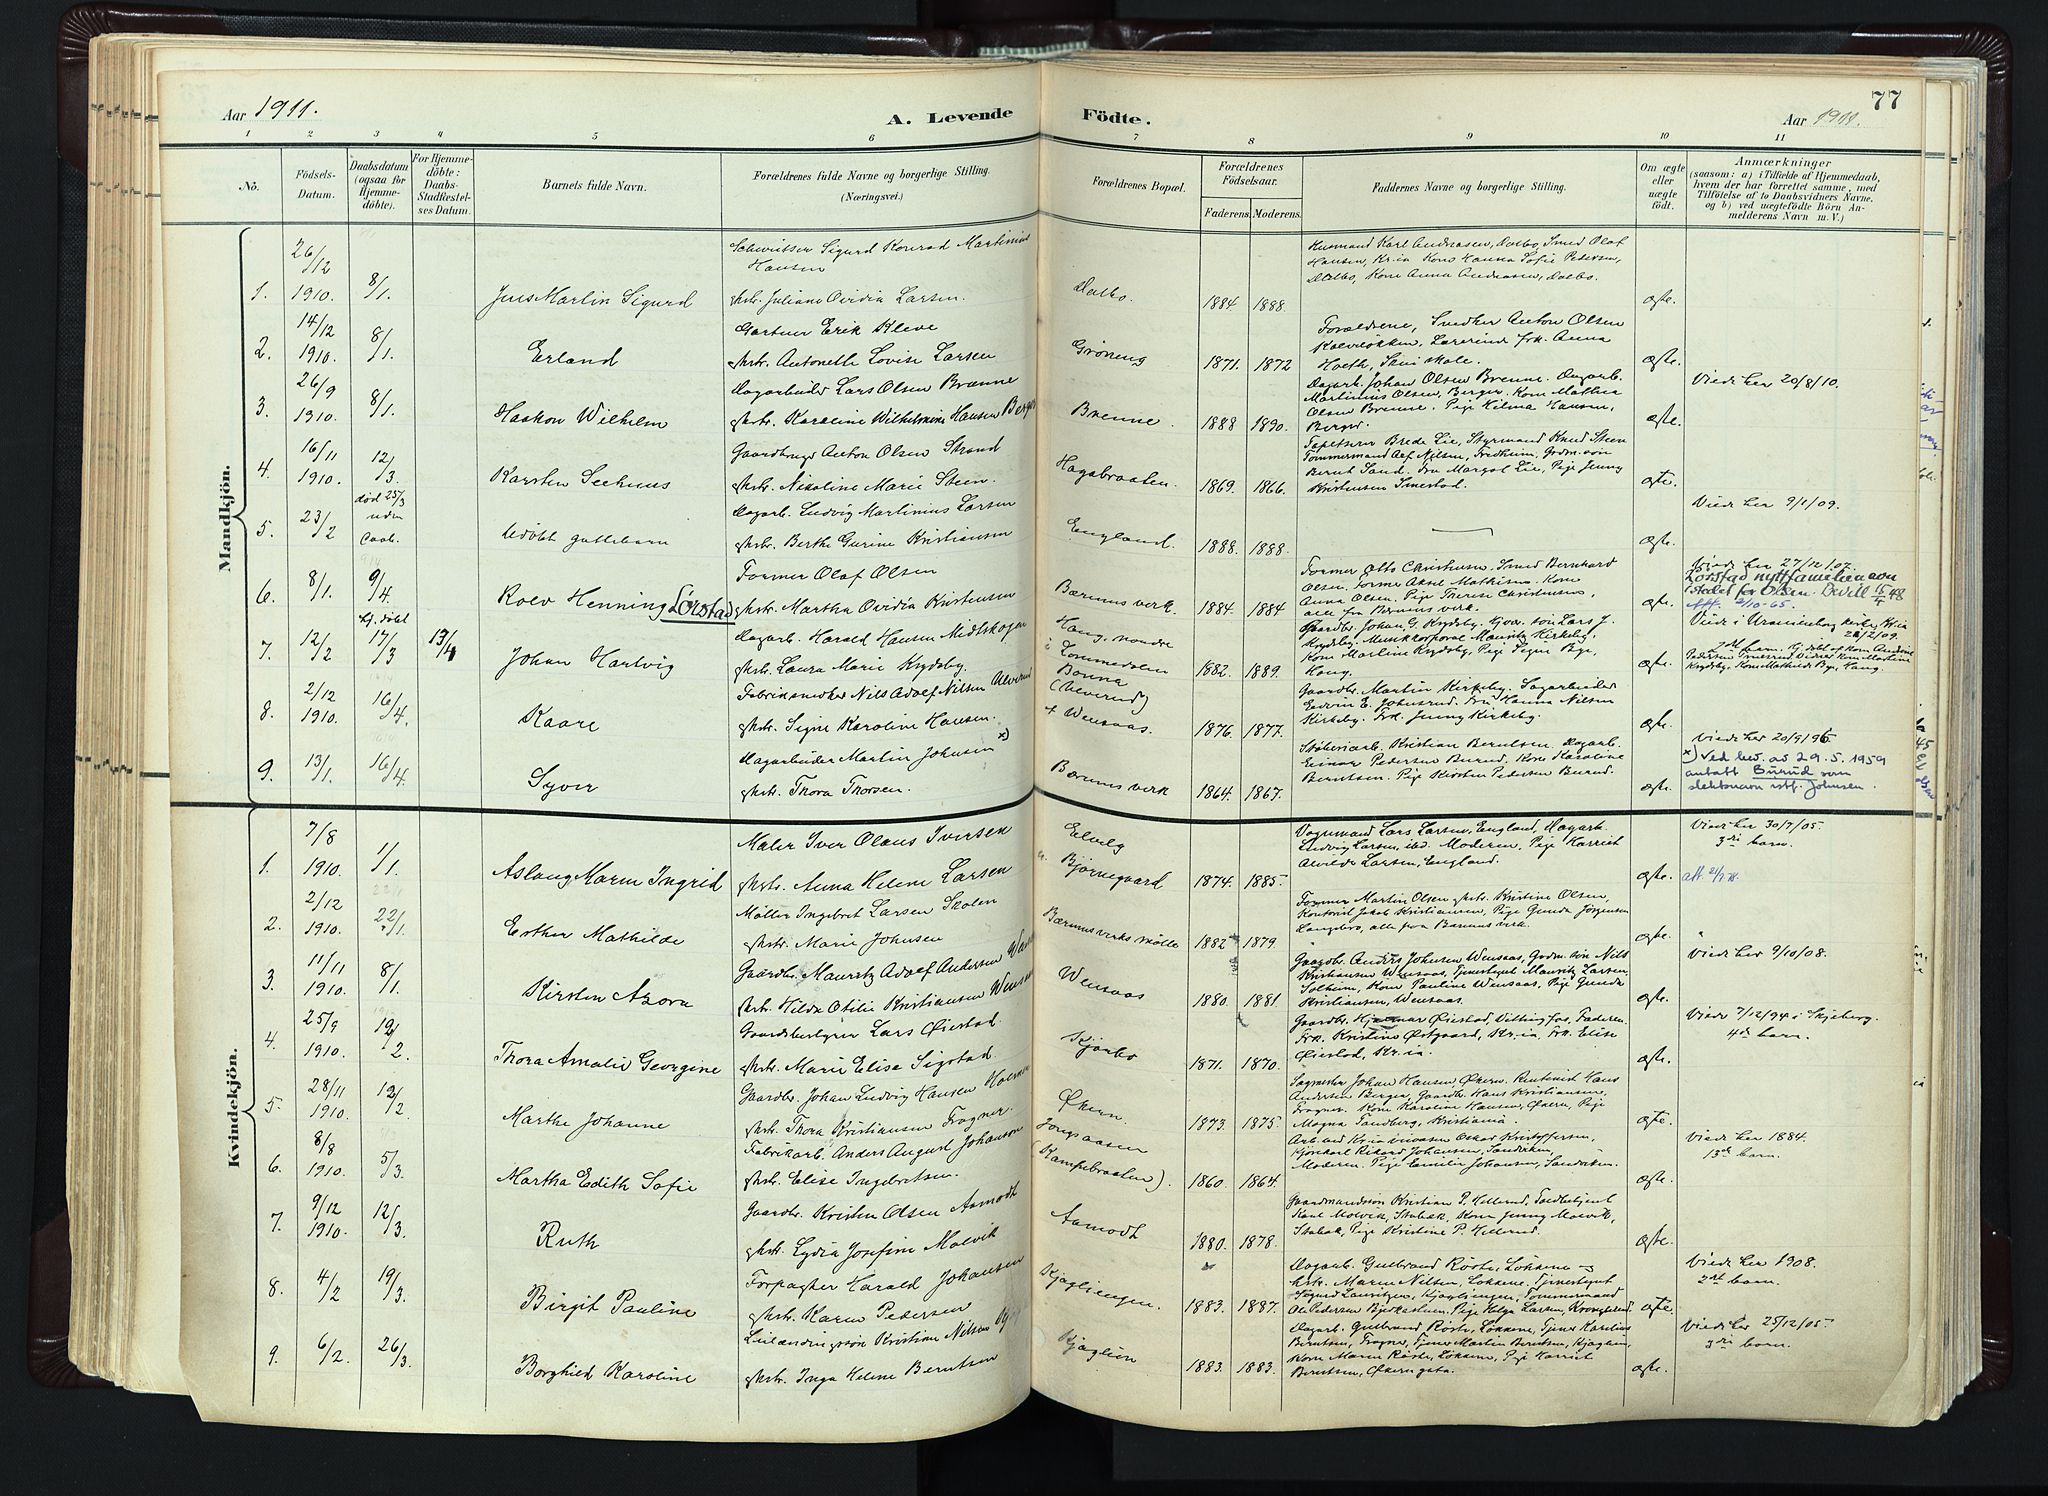 Aar 1911.
A. Levende
Födte.
77
Aar 1911.
1 2 3 4 5 6 7 8 9 10 11
No.
Födsels-
Datum.
Daabsdatum
(ogsaa for
Hjemme-
döbte).
For Hjemme-
döbte:
Daabs-
Stadfæstel-
ses Datum.
Barnets fulde Navn.
Forældrenes fulde Navne og borgerlige Stilling.
(Næringsvei.)
Forældrenes Bopæl.
Forældrenes
Födselsaar.
Faderens.
Moderens.
Faddernes Navne og borgerlige Stilling.
Om ægte
eller
uægte
födt.
Anmærkninger
(saasom: a) i Tilfælde af Hjemmedaab,
hvem der har forrettet samme, med
Tilföielse af to Daabsvidners Navne,
og b) ved uægtefödte Börn An-
melderens Navn m. V.)
Mandkjön.
1. 26/12 1910. 8/1. Jens Martin Sigurd
Sigurd Konrad Martinius
Hansen
Hstr. Juliane Ovidia Larsen.
Dalbo. 1884. 1888.
Husmand Karl Andreasen, Dalbo, Smed Olaf
Hansen, Kr.ia Kone Hanna Sofie Pedersen,
Dalbo, Kone Anna Andreasen, Dalbo.
ægte.
2. 14/12 1910. 8/1. Erland
Gartner Erik Kleve
Hstr. Antonette Lovise Larsen
Grøneng 1871. 1872
Forældrene, Snedker Anton Olsen
Kalveløkken, Lærerinde frk. Anna
ægte.
3. 26/9 1910. 8/1. Haakon Wilhelm
Dagarbeider Lars Olsen Brenne
Hstr. Karoline Wilhelmine Hansen Berger
Brenne. 1888 1890.
Dagarb. Johan Olsen Brenne. Dagarb.
Martinius Olsen, Berger. Kone Mathea
Olsen Brenne. Pige Hilma Hansen,
Berger.
ægte.
Viede her 20/8/10.
4. 16/11 1910. 12/3. Karsten Seehuus
Gaardbruger Anton Olsen Strand
Hstr. Nikoline Marie Steen.
Hagabraaten. 1869. 1866.
Tapetserer Brede Lie, Styrmand Knud Steen
Tømmermand Alf Nilsen, Fredheim, Grdm.søn
Bernt Sand. Fru Margot Lie, Pige Jenny
Kristensen Smestad.
ægte.
5. 23/2 død 25/3 uden Daab. Udøbt guttebarn
Dagarb. Ludvig Martinius Larsen
Hstr. Berthe Gurine Kristiansen
England. 1888. 1888.
ægte.
Viede her 9/1/09.
6. 8/1. 9/4. Rolv Henning Lørstad
Former Olaf Olsen
Hstr. Martha Ovidia Kristensen
Bærums verk. 1884. 1884
Former Otto Christensen, Smed Bernhard
Olsen, Former Aksel Mathisen, Kone
Anna Olsen. Pige Therese Christensen,
alle fra Bærums verk.
ægte.
Viede her 27/12/07.
Lørstad nytt familienavn
istedet for Olsen. Bevill 15/4 48
Att. 2/10-65.
7. 12/2 Hj. døbt 17/3 17/4 Johan Hartvig
Dagarb. Harald Hansen Midtskogen
Hstr. Laura Marie Krydsby.
Haug nordre
i Lommedalen 1882. 1889.
Gaardbr. Johan G. Krydsby. Gjov. søn Lars J.
Krydsby. Musikkorporal Mauritz Kirkeby.
Kone Martine Krydsby, Pige Signe Bye,
Haug.
ægte.
Viede i Uranienborg kirke, Kr.ia
2/12/09.
2det barn. Hj. døbt af Kone Andrine
Pedersen Smedsrud. Vidner Kone Martine
Krydsby, Kone Mathilde Bye, Haug.
8. 2/12 1910. 16/4. Kaare
Fabriksnedker Nils Adolf Nilsen Ulverud
Hstr. Signe Karoline Hansen.
Bonna
(Ulverud)
+ Wensaas. 1876. 1877.
Gaardbr. Martin Kirkeby. Sagarbeider
Edvin E. Johnsrud. Fru Hanna Nilsen
Kirkeby. Frk. Jenny Kirkeby.
ægte.
9. 13/1. 16/4. Syver
Dagarbeider Martin Johnsen x)
Hstr. Thora Thorsen.
Bærums verk 1864. 1867.
Støberiarb. Kristian Berntsen. Dagarb.
Einar Pedersen Burud, Kone Karoline
Berntsen. Pige Kirsten Pedersen Burud.
ægte.
Viede her 20/9/96
x) Ved bev. av 29.5.1959
antatt Burud som
slektsnavn istf. Johnsen.
Kvindekjön.
1. 7/8 1910. 1/1. Aslaug Maren Ingrid
Maler Iver Olaus Iversen
Hstr. Anna Helene Larsen
Eelvelg
Bjørnegaard 1874. 1885.
Vognmand Lars Larsen, England, Dagarb.
Ludvig Larsen, ibd. Moderen. Pige Harriet
Alvilde Larsen, England.
ægte.
Viede her 30/7/05.
3die barn.
2. 2/12 1910. 22/1. Esther Mathilde
Møller Ingebret Larsen Skolen
Hstr. Marie Johnsen
Bærums verks mølle 1882 1879.
Former Martin Olsen Hstr. Kristine Olsen,
Kontorist Jakob Kristiansen, Pige Gunda Jørgensen
Langebro, alle fra Bærums verk.
ægte.
3. 11/11 1910. 8/1. Kirsten Azora
Gaardbr. Mauritz Adolf Andersen
Hstr. Hilda Otilie Kristiansen Wensaas
Wensaas 1880. 1881.
Gaardb. Anders Johnsen Wensaas, Grdm. søn Nils
Kristiansen Wensaas, Tjenestegut Mauritz Larsen
Solheim, Kone Pauline Wensaas, Pige Gunda
Kristiansen, Wensaas.
ægte.
Viede her 9/10/08.
4. 25/9 1910. 12/2. Thora Amalie Georgine
Gaardsbestyrer Lars Øiestad.
Hstr. Marie Elise Sigstad.
Kjørbo 1871. 1870.
Gaardbr. Hjalmar Øiestad, Vittingfos, Faderen.
Frk. Kristine Østgaard, Kr.ia. Frk. Elise
Øiestad, Kr.ia.
ægte.
Viede 7/12/94 i Skjeberg.
4de barn.
5. 28/11 1910. 12/2. Marthe Johanne
Gaardbr. Johan Ludvig Hansen
Hstr. Thora Kristiansen Fragner.
Økern 1873. 1875.
Sagmester Johan Hansen Økern. Rentenist Hans
Andersen Berger, Gaardbr. Hans Kristiansen,
Fragner. Kone Karoline Hansen, Økern, Pige
Magna Sandberg, Kristiania.
ægte.
6. 8/8 1910. 5/3. Martha Edith Sofie
Fabrikarb. Anders August Johanson
Hstr. Elise Ingebretsen.
Jongsaasen
(Kampebraaten). 1860. 1864.
Oskar Kristoffersen,
Rikard Johansen, Sandviken,
Moderen. Pige Emilie Johansen, Sandviken.
ægte.
Viede her 1884.
13de barn.
7. 9/12 1910. 12/3. Ruth
Gaardbr. Kristen Olsen Aamodt
Hstr. Lydia Josefine Molvik
Aamodt 1880. 1878.
Gaardmandssøn Kristian P. Hellerud,
Karl Molvik, Stabæk, Kone Jenny Molvik,
Stabæk, Pige Kristine P. Hellerud.
ægte.
8. 4/2 19/3. Birgit Pauline
Forpagter Harald Johansen
Hstr. Karen Pedersen
Kjagliengen. 1883. 1887.
Dagarb. Gulbrand Røste, Løkkene og
Hstr. Maren Nilsen, Løkkene. Tjenestegut
Sigurd Lauritzen, Kjagliengen, Tømmermand
Ole Pedersen Bjerkeshagen, Pige Helga Larsen,
ægte
Viede her 1908.
2det barn.
9. 6/2. 26/3. Borghild Karoline
Leilændingssøn Kristian Nilsen
Hstr. Inga Helene Berntsen
Kjaglien 1883. 1883.
Dagarb. Gulbrand Røste, Løkkene, Tjener Karelius
Berntsen, Fragner, Tjener Martin Berntsen, Kjaglien,
Kone Maren Røste, Løkkene, Pige Harriet
Berntsen,
ægte.
Viede her 25/12/05.
3die barn.